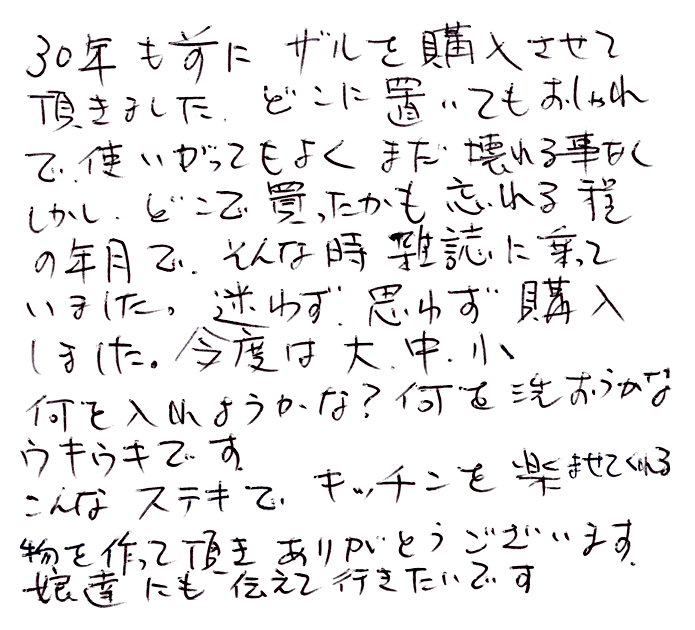 30年も前に ザルを購入させて
頂きました. どこに置いてもおしゃれ
で. 使いがってもよく まだ 壊れる事なく
しかし. どこで買ったかも 忘れる程
の年月で. そんな時 雑誌に乗って
いました。迷わず. 思わず 購入
しました。今度は 大. 中. 小
何を入れようかな?何を洗おうかな
ウキウキです.
こんな ステキで. キッチンを 楽ませてくれる
物を作って頂き ありがとうございます.
娘達にも 伝えて行きたいです